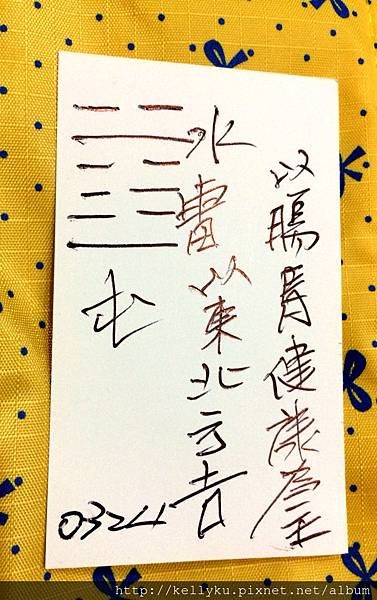 以腸胃健康為主
水雷以東北方吉
屯
0324
http://kellyku.pixnet.net/album